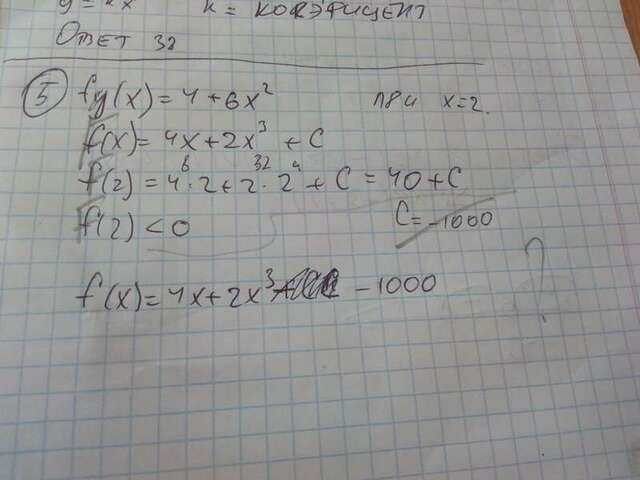 y = kx k = КОЭФИЦЕНТ
ОТВЕТ 32
5 fy(x) = 4 + 6x² ПРИ x=2.
f(x) = 4x + 2x³ + C
f(2) = 4·2 + 2·2⁴ + C = 40 + C
8 32
f(2) < 0 C = -1000
f(x) = 4x + 2x³ - 1000 ?